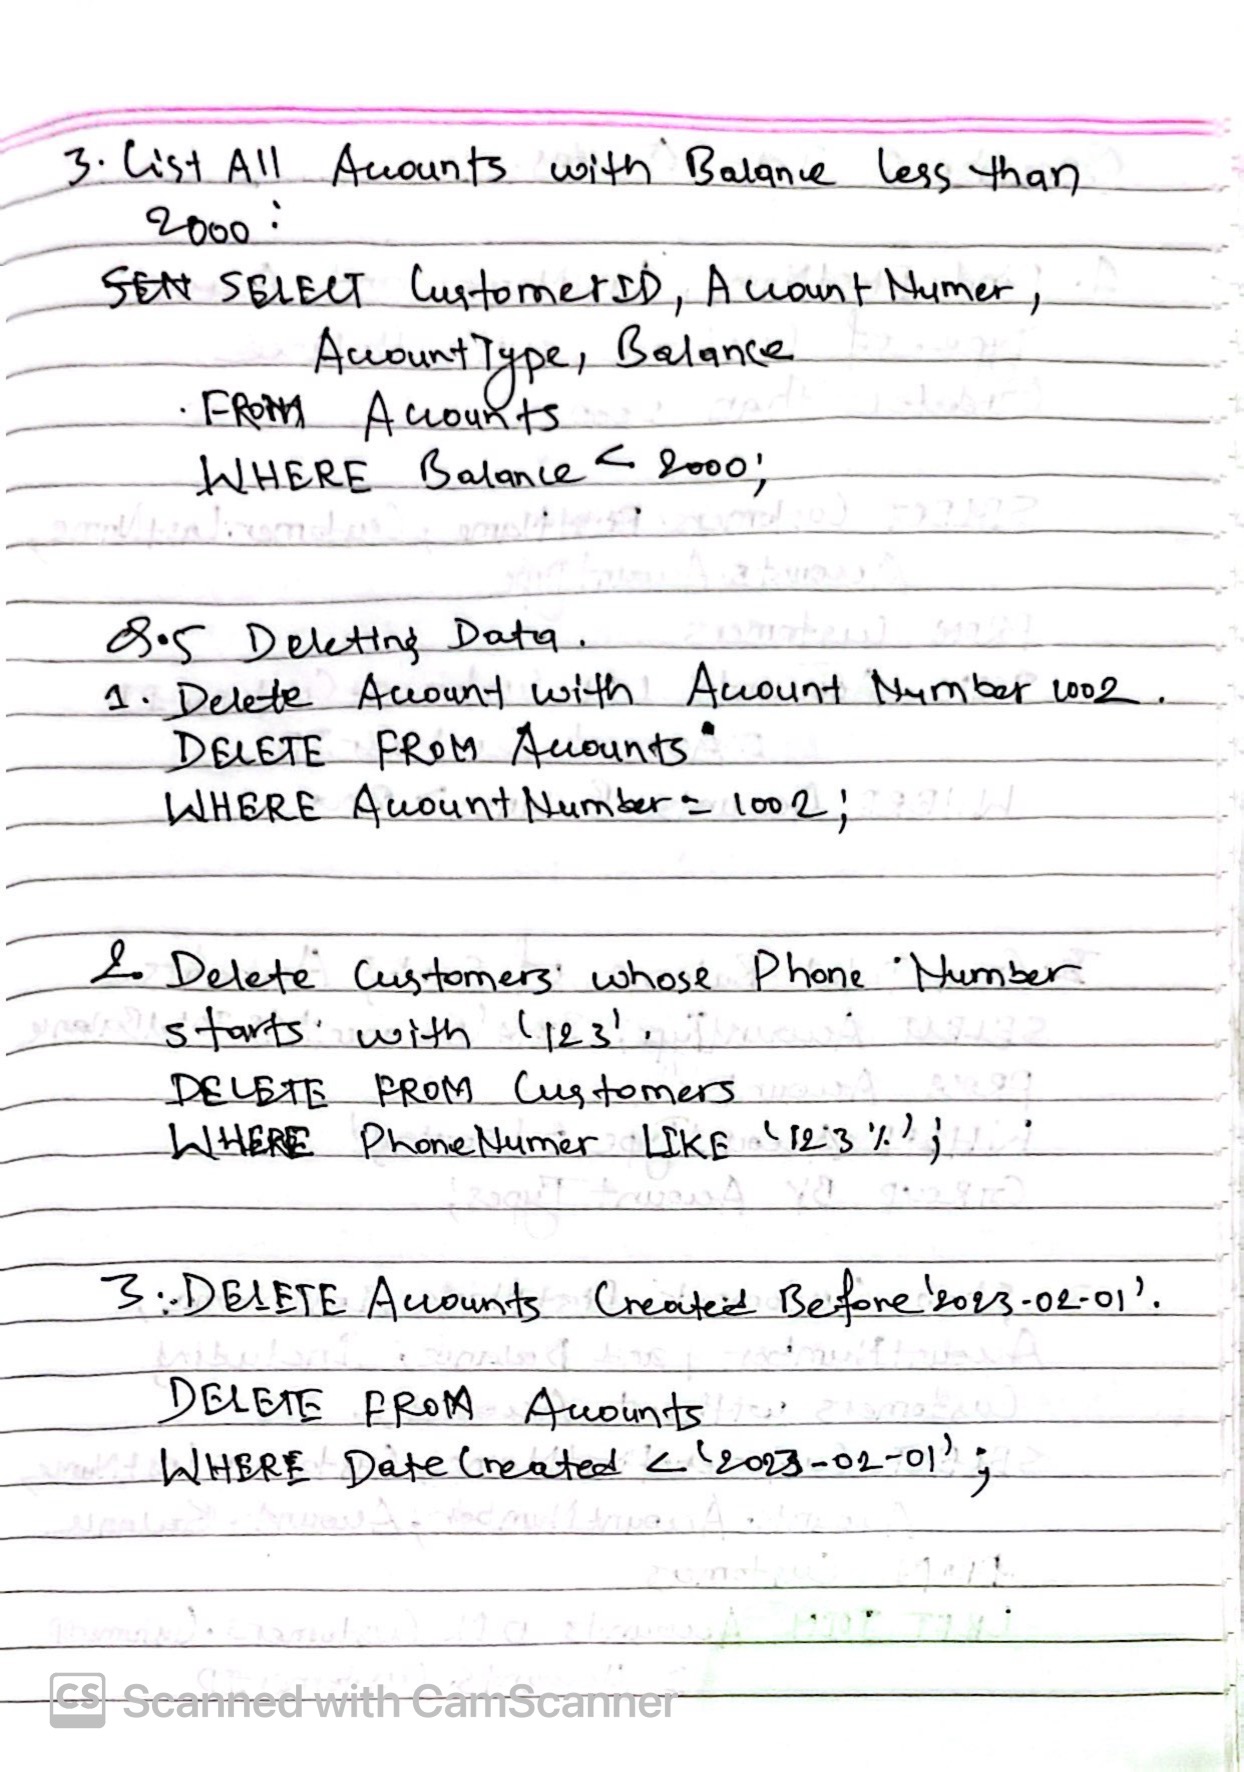 3. List All Accounts with Balance less than
2000:
SELECT CustomerID, AccountNumer,
AccountType, Balance
FROM Accounts
WHERE Balance < 2000;
Q.5 Deleting Data.
1. Delete Account with Account Number 1002.
DELETE FROM Accounts
WHERE AccountNumber = 1002;
2. Delete Customers whose Phone Number
starts with '123'.
DELETE FROM Customers
WHERE PhoneNumer LIKE '123%';
3. DELETE Accounts Created Before '2023-02-01'.
DELETE FROM Accounts
WHERE DateCreated < '2023-02-01';
CS Scanned with CamScanner